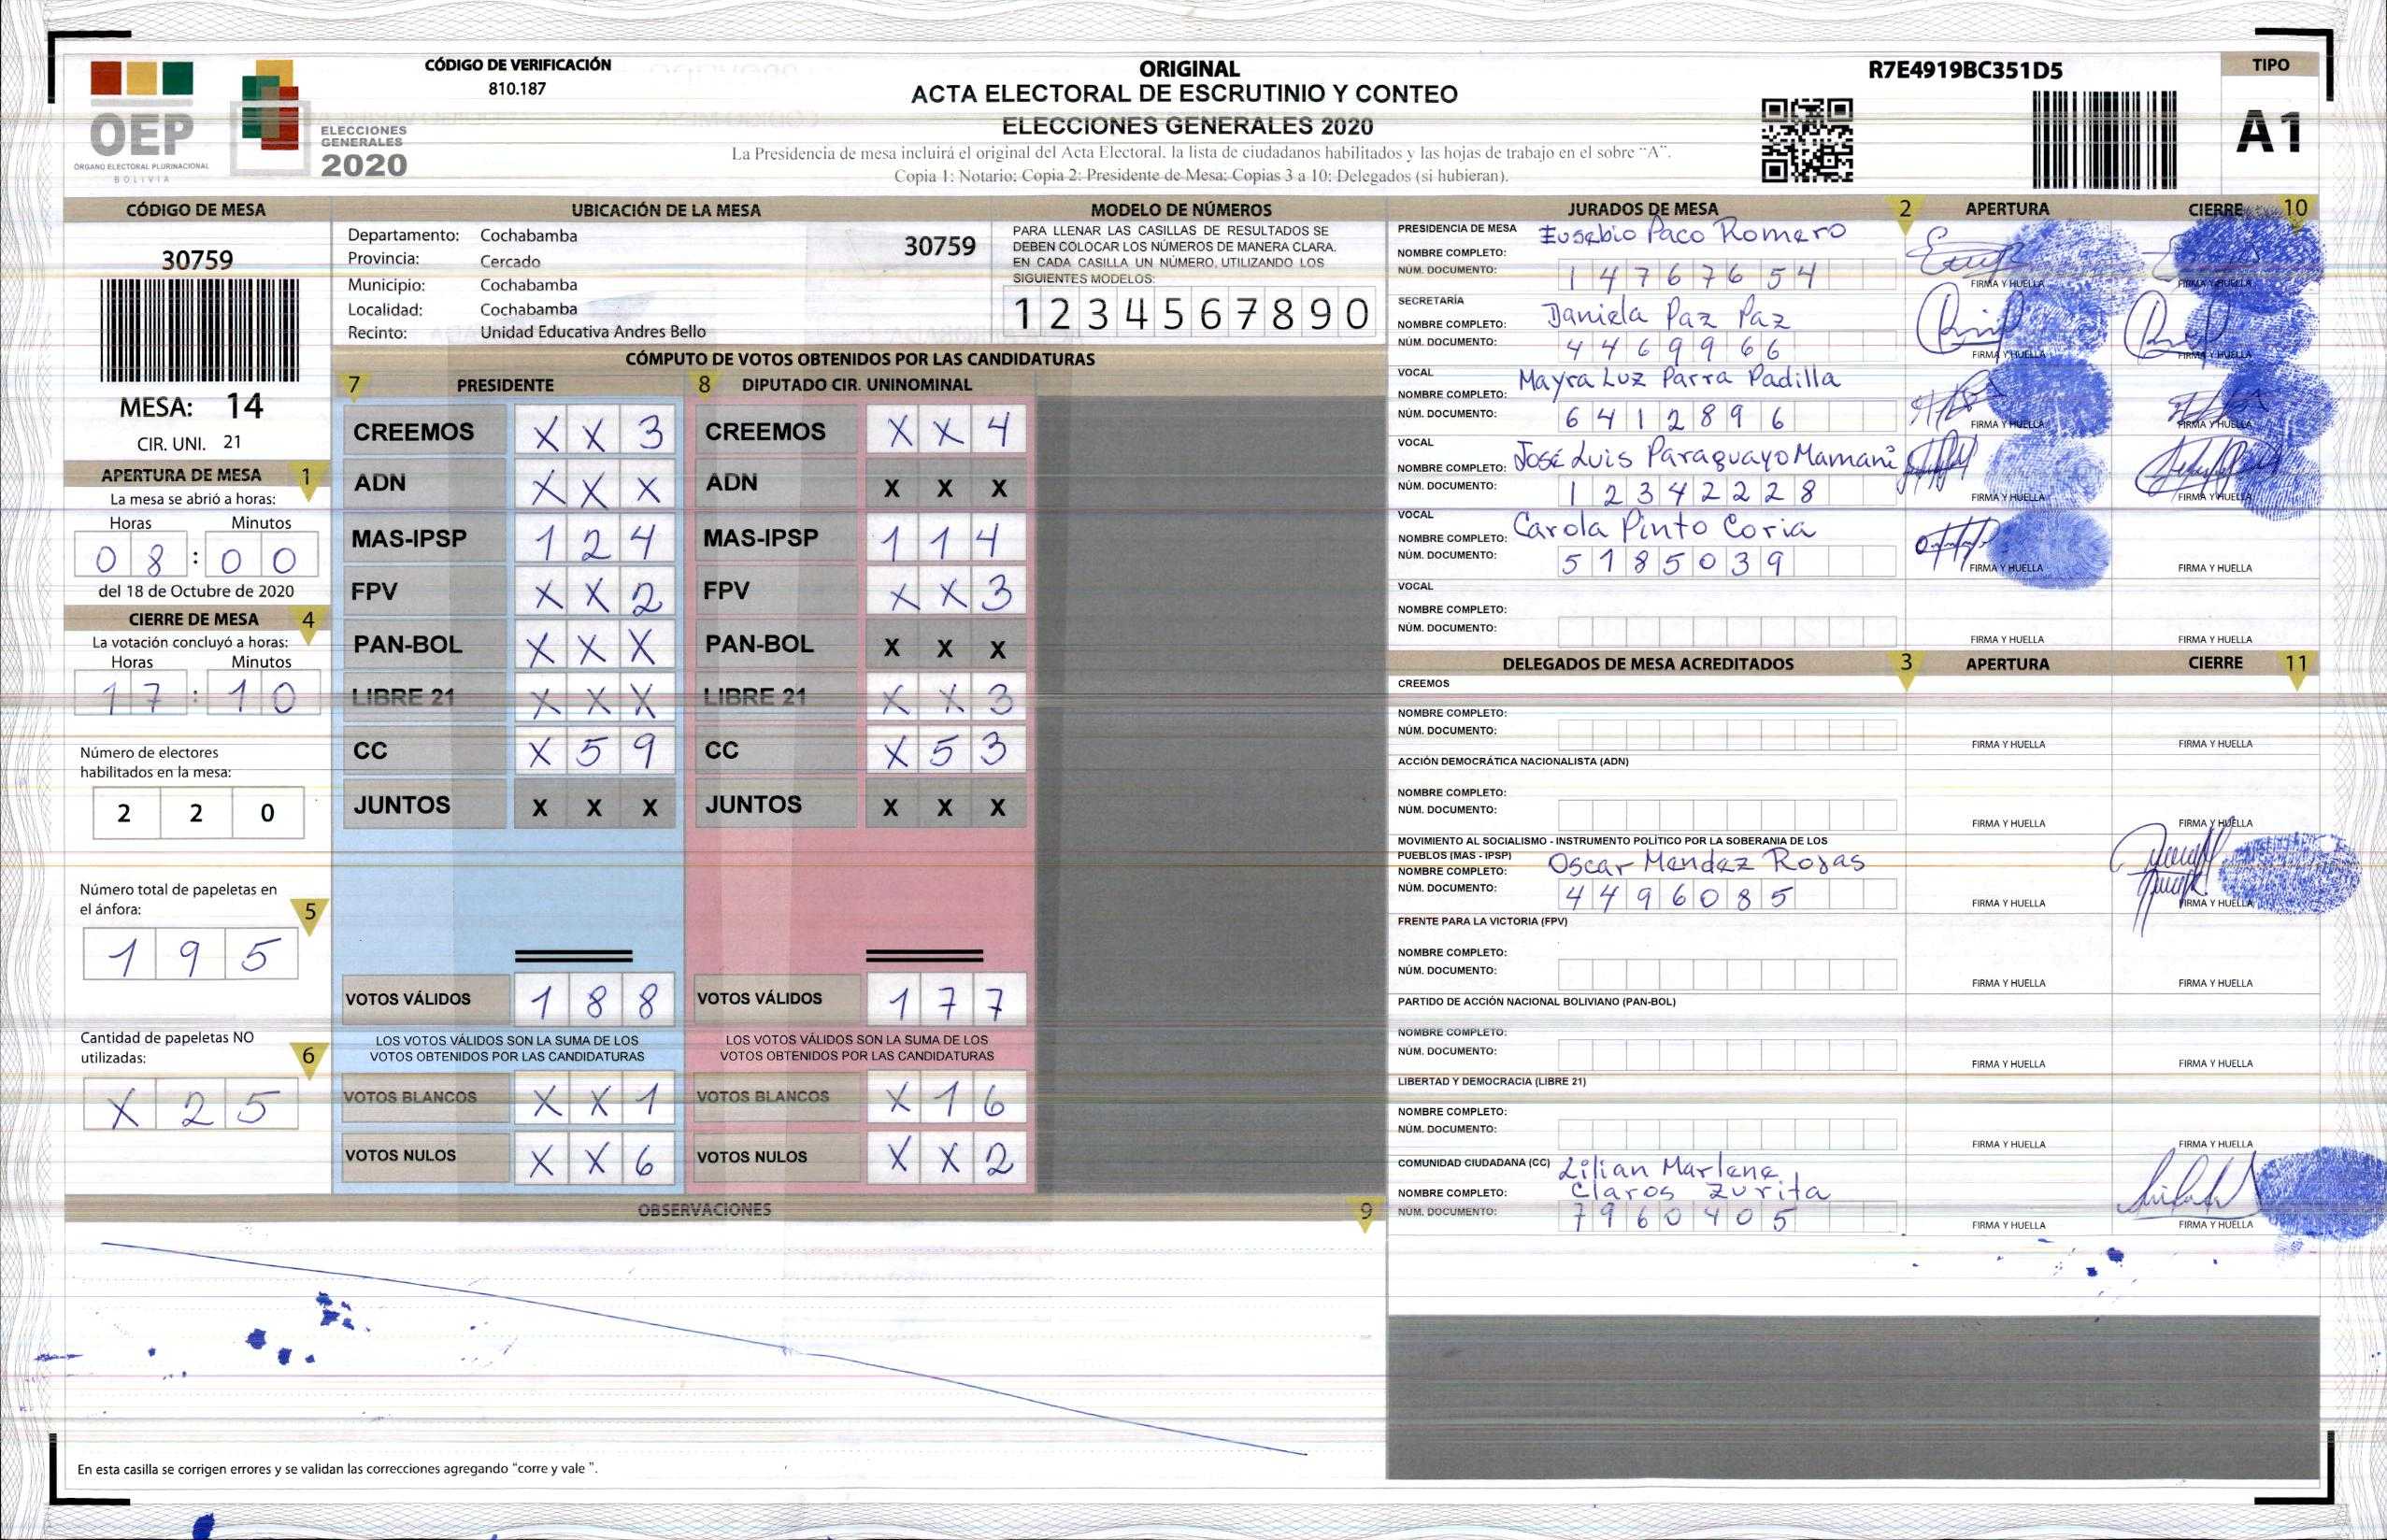 OEP
ÓRGANO ELECTORAL PLURINACIONAL
BOLIVIA
ELECCIONES
GENERALES
2020
CÓDIGO DE VERIFICACIÓN
810.187
ORIGINAL
ACTA ELECTORAL DE ESCRUTINIO Y CONTEO
ELECCIONES GENERALES 2020
La Presidencia de mesa incluirá el original del Acta Electoral, la lista de ciudadanos habilitados y las hojas de trabajo en el sobre "A".
Copia 1: Notario; Copia 2: Presidente de Mesa; Copias 3 a 10: Delegados (si hubieran).
R7E4919BC351D5
TIPO
A1
CÓDIGO DE MESA
30759
MESA: 14
CIR. UNI. 21
APERTURA DE MESA 1
La mesa se abrió a horas:
Horas Minutos
0 8 : 0 0
del 18 de Octubre de 2020
CIERRE DE MESA 4
La votación concluyó a horas:
Horas Minutos
1 7 : 1 0
Número de electores
habilitados en la mesa:
2 2 0
Número total de papeletas en
el ánfora: 5
1 9 5
Cantidad de papeletas NO
utilizadas: 6
X 2 5
UBICACIÓN DE LA MESA
Departamento: Cochabamba 30759
Provincia: Cercado
Municipio: Cochabamba
Localidad: Cochabamba
Recinto: Unidad Educativa Andres Bello
MODELO DE NÚMEROS
PARA LLENAR LAS CASILLAS DE RESULTADOS SE
DEBEN COLOCAR LOS NÚMEROS DE MANERA CLARA.
EN CADA CASILLA UN NÚMERO, UTILIZANDO LOS
SIGUIENTES MODELOS:
1 2 3 4 5 6 7 8 9 0
CÓMPUTO DE VOTOS OBTENIDOS POR LAS CANDIDATURAS
7 PRESIDENTE 8 DIPUTADO CIR. UNINOMINAL
CREEMOS X X 3 CREEMOS X X 4
ADN X X X ADN X X X
MAS-IPSP 1 2 4 MAS-IPSP 1 1 4
FPV X X 2 FPV X X 3
PAN-BOL X X X PAN-BOL X X X
LIBRE 21 X X X LIBRE 21 X X 3
CC X 5 9 CC X 5 3
JUNTOS X X X JUNTOS X X X
VOTOS VÁLIDOS 1 8 8 VOTOS VÁLIDOS 1 7 7
LOS VOTOS VÁLIDOS SON LA SUMA DE LOS LOS VOTOS VÁLIDOS SON LA SUMA DE LOS
VOTOS OBTENIDOS POR LAS CANDIDATURAS VOTOS OBTENIDOS POR LAS CANDIDATURAS
VOTOS BLANCOS X X 1 VOTOS BLANCOS X 1 6
VOTOS NULOS X X 6 VOTOS NULOS X X 2
OBSERVACIONES 9
En esta casilla se corrigen errores y se validan las correcciones agregando "corre y vale ".
JURADOS DE MESA 2 APERTURA CIERRE 10
PRESIDENCIA DE MESA
NOMBRE COMPLETO: Eusebio Paco Romero
NÚM. DOCUMENTO: 1 4 7 6 7 6 5 4 FIRMA Y HUELLA FIRMA Y HUELLA
SECRETARÍA
NOMBRE COMPLETO: Daniela Paz Paz
NÚM. DOCUMENTO: 4 4 6 9 9 6 6 FIRMA Y HUELLA FIRMA Y HUELLA
VOCAL
NOMBRE COMPLETO: Mayra Luz Parra Padilla
NÚM. DOCUMENTO: 6 4 1 2 8 9 6 FIRMA Y HUELLA FIRMA Y HUELLA
VOCAL
NOMBRE COMPLETO: José Luis Paraguayo Mamani
NÚM. DOCUMENTO: 1 2 3 4 2 2 2 8 FIRMA Y HUELLA FIRMA Y HUELLA
VOCAL
NOMBRE COMPLETO: Carola Pinto Coria
NÚM. DOCUMENTO: 5 1 8 5 0 3 9 FIRMA Y HUELLA FIRMA Y HUELLA
VOCAL
NOMBRE COMPLETO:
NÚM. DOCUMENTO: FIRMA Y HUELLA FIRMA Y HUELLA
DELEGADOS DE MESA ACREDITADOS 3 APERTURA CIERRE 11
CREEMOS
NOMBRE COMPLETO:
NÚM. DOCUMENTO: FIRMA Y HUELLA FIRMA Y HUELLA
ACCIÓN DEMOCRÁTICA NACIONALISTA (ADN)
NOMBRE COMPLETO:
NÚM. DOCUMENTO: FIRMA Y HUELLA FIRMA Y HUELLA
MOVIMIENTO AL SOCIALISMO - INSTRUMENTO POLÍTICO POR LA SOBERANIA DE LOS
PUEBLOS (MAS - IPSP)
NOMBRE COMPLETO: Oscar Mendez Rojas
NÚM. DOCUMENTO: 4 4 9 6 0 8 5 FIRMA Y HUELLA FIRMA Y HUELLA
FRENTE PARA LA VICTORIA (FPV)
NOMBRE COMPLETO:
NÚM. DOCUMENTO: FIRMA Y HUELLA FIRMA Y HUELLA
PARTIDO DE ACCIÓN NACIONAL BOLIVIANO (PAN-BOL)
NOMBRE COMPLETO:
NÚM. DOCUMENTO: FIRMA Y HUELLA FIRMA Y HUELLA
LIBERTAD Y DEMOCRACIA (LIBRE 21)
NOMBRE COMPLETO:
NÚM. DOCUMENTO: FIRMA Y HUELLA FIRMA Y HUELLA
COMUNIDAD CIUDADANA (CC) Lilian Marlene
NOMBRE COMPLETO: Claros Zurita
NÚM. DOCUMENTO: 7 9 6 0 4 0 5 FIRMA Y HUELLA FIRMA Y HUELLA